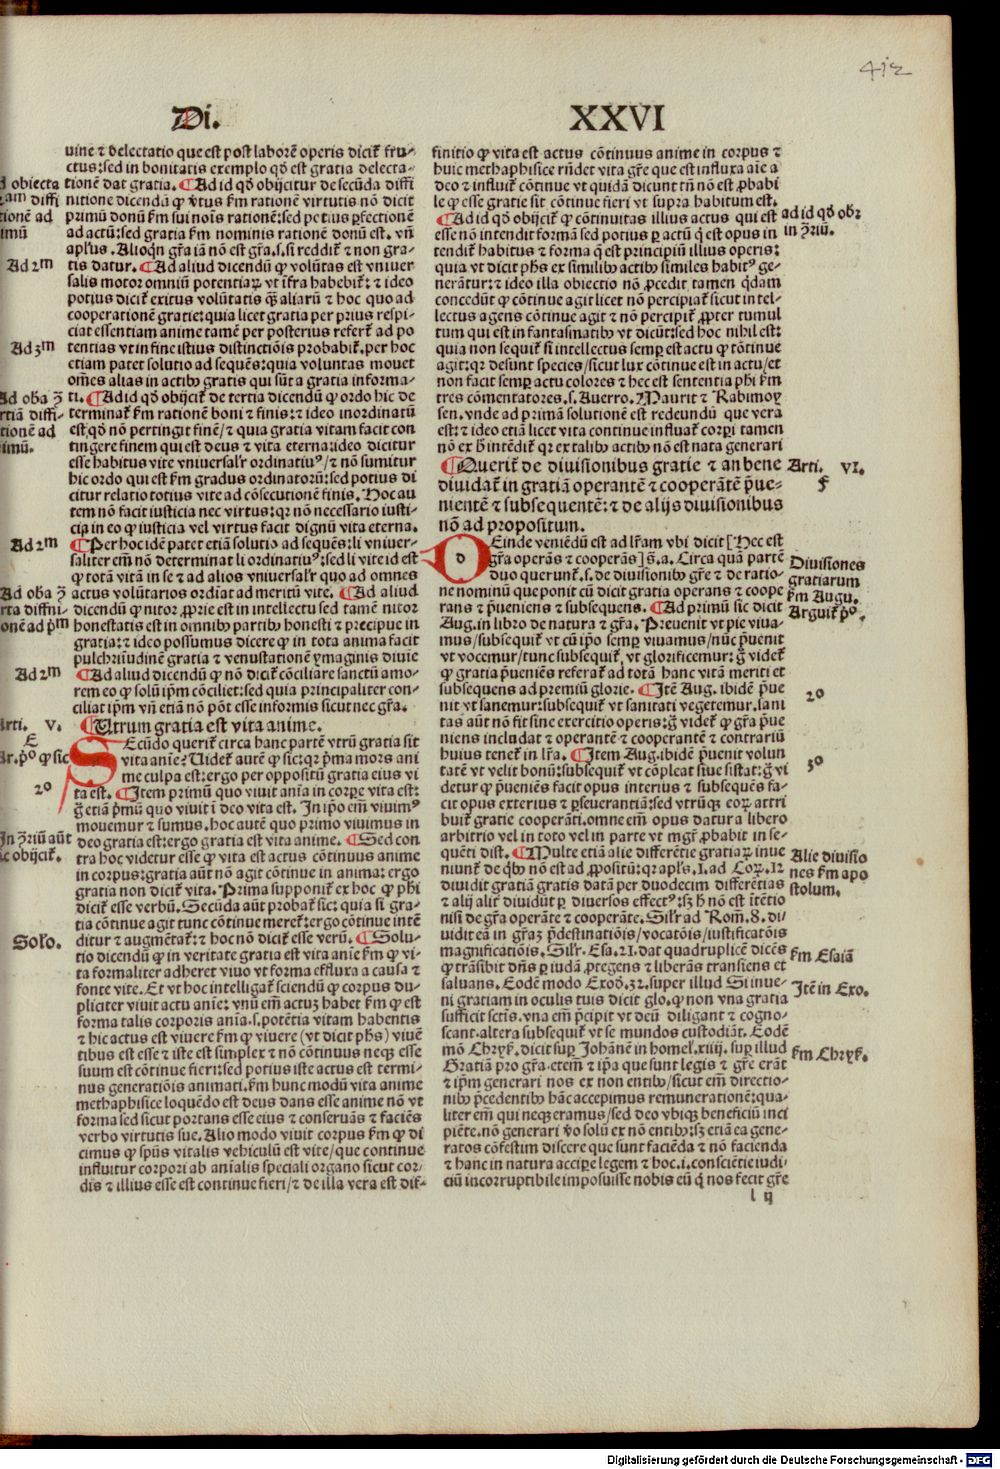 412
Di. XXVI
uine ⁊ delectatio que est post laborē operis diciť fru-
ctus: sed in bonitatis exemplo qđ est gratia delecta-
tionē dat gratia. ¶Ad id qđ obijcitur de secūda diffi
nitione dicendū ꝙ v̓tus ẜm rationem virtutis nō dicit
primū donū ẜm sui nois rationē: sed potius ꝑfectionē
ad actū: sed gratia ẜm nominis rationem donū est. vn̄
apl̓us. Alioqn̄ gr̄a iā nō est gr̄a. s. si reddiť ⁊ non gra-
tis datur. ¶Ad aliud dicendū ꝙ volūtas est vniuer
salis motor omniū potentiaꝝ vt ifra habebiť: ⁊ ideo
potius diciť exitus volūtatis q̄ȝ aliarū ⁊ hoc quo ad
cooperationē gratie: quia licet gratia per prius respi-
ciat essentiam anime tamē per posterius referť ad po
tentias vt in fine istius distinctiōis probabiť. per hoc
etiam patet solutio ad sequēs: quia voluntas mouet
om̄es alias in actib⁹ gratis qui sūt a gratia informa-
ti. ¶Ad id qđ obijciť de tertia dicendū ꝙ ordo hic de
terminať ẜm rationē boni ⁊ finis: ⁊ ideo inordinatū
est qđ nō pertingit finē/ ⁊ quia gratia vitam facit con
tingere finem qui est deus ⁊ vita eterna: ideo dicitur
esse habitus vite vniuersal'r ordinatiu⁹/ ⁊ nō sumitur
hic ordo qui est ẜm gradus ordinatorū: sed potius di
citur relatio totius vite ad cōsecutionē finis. Hoc au
tem nō facit iusticia nec virtus: qꝛ nō necessario iusti-
cia in eo ꝙ iusticia vel virtus facit dignū vita eterna.
¶Per hoc idē patet etiā solutio ad sequēs: li vniuer-
saliter em̄ nō determinat li ordinatiu⁹: sed li vite id est
ꝙ totā vitā in se ⁊ ad alios vniuersal'r quo ad omnes
actus volūtarios ordiat ad meritū vite. ¶Ad aliud
dicendū ꝙ nitor ꝓprie est in intellectu sed tamē nitor
honestatis est in omnib⁹ partib⁹ honesti ⁊ precipue in
gratia: ⁊ ideo possumus dicere ꝙ in tota anima facit
pulchritudinē gratia ⁊ venustationē ymaginis diuie
¶Ad aliud dicendū ꝙ nō diciť cōciliare sanctū amo-
rem eo ꝙ solū ip̄m cōciliet: sed quia principaliter con-
ciliat ip̄m vn̄ etiā nō pōt esse informis sicut nec gr̄a.
¶Utrum gratia est vita anime.
SEcūdo queriť circa hanc partē vtrū gratia sit
vita anie? Uideť autē ꝙ sic: qꝛ p̄ma mors ani
me culpa est: ergo per oppositū gratia eius vi
ta est. ¶Item primū quo viuit anīa in corpe vita est:
ḡ etiā p̄mū quo viuit ī deo vita est. In ip̄o em̄ viuim⁹
mouemur ⁊ sumus. hoc autē quo primo viuimus in
deo gratia est: ergo gratia est vita anime. ¶Sed con
tra hoc videtur esse ꝙ vita est actus cōtinuus anime
in corpus: gratia aūt nō agit cōtinue in anima: ergo
gratia non diciť vita. Prima supponiť ex hoc ꝙ phī
diciť esse verbū. Secūda aūt probať sic: quia si gra-
tia cōtinue agit tunc cōtinue mereť: ergo cōtinue intē
ditur ⁊ augmētať: ⁊ hoc nō diciť esse verū. ¶Solu-
tio dicendū ꝙ in veritate gratia est vita anie ẜm ꝙ vi-
ta formaliter adheret viuo vt forma effluxa a causa ⁊
fonte vite. Et vt hoc intelligať sciendū ꝙ corpus du-
pliciter viuit actu anie: vnū em̄ actuȝ habet ẜm ꝙ est
forma talis corporis anīa. s. potētia vitam habentis
⁊ hic actus est viuere ẜm ꝙ viuere (vt dicit phs) viuē
tibus est esse ⁊ iste est simplex ⁊ nō cōtinuus neqȝ esse
suum est cōtinue fieri: sed potius iste actus est termi-
nus generatiōis animati. ẜm hunc modū vita anime
methaphisice loquēdo est deus dans esse anime nō vt
forma sed sicut portans esse eius ⁊ conseruās ⁊ faciēs
verbo virtutis sue. Alio modo viuit corpus ẜm ꝙ di
cimus ꝙ spūs vitalis vehiculū est vite/ que continue
influitur corpori ab anīalis speciali organo sicut cor-
dis ⁊ illius esse est continue fieri/ ⁊ de illa vera est dif-
finitio ꝙ vita est actus cōtinuus anime in corpus ⁊
huic methaphisice rn̄det vita gr̄e que est influxa aie a
deo ⁊ influiť cōtinue vt quidā dicunt tn̄ nō est ꝓbabi
le ꝙ esse gratie sit cōtinue fieri vt supra habitum est.
¶Ad id qđ obijciť ꝙ cōtinuitas illius actus qui est
esse nō intendit formā sed potius ꝑ actū q̄ est opus in
tendiť habitus ⁊ forma q̄ est principiū illius operis:
quia vt dicit phs ex similib⁹ actib⁹ similes habit⁹ ge-
nerātur: ⁊ ideo illa obiectio nō ꝓcedit tamen qdam
concedūt ꝙ cōtinue agit licet nō percipiať sicut intel-
lectus agens cōtinue agit ⁊ nō percipiť ꝓpter tumul
tum qui est in fantasmatib⁹ vt dicūt: sed hoc nihil est:
quia non sequiť si intellectus semp est actu ꝙ cōtinue
agit: qꝛ desunt species/ sicut lux cōtinue est in actu/ et
non facit semp actu colores ⁊ hec est sententia phī ẜm
tres cōmentatores. s. Auerro. Maurit ⁊ Rabimoy
sen. vnde ad primā solutionē est redeundū que vera
est: ⁊ ideo etiā licet vita continue influať corpi tamen
nō ex h̄ intēdiť qꝛ ex talib⁹ actib⁹ nō est nata generari
¶Queriť de diuisionibus gratie ⁊ an bene
diuidať in gratiā operantē ⁊ cooperātē p̄ue-
nientē ⁊ subsequentē: ⁊ de alijs diuisionibus
nō ad propositum.
DEinde veniēdū est ad lr̄am vbi dicit [Hec est
gr̄a operās ⁊ cooperās] s̄. a. Circa quā partē
duo querunť. s. de diuisionib⁹ gr̄e ⁊ de ratio-
ne nominū que ponit cū dicit gratia operans ⁊ coope
rans ⁊ p̄ueniens ⁊ subsequens. ¶Ad primū sic dicit
Aug. in libro de natura ⁊ gr̄a. Preuenit vt pie viua-
mus/ subsequiť vt cū ip̄o semp viuamus/ nūc p̄uenit
vt vocemur/ tunc subsequiť vt glorificemur: ḡ videť
ꝙ gratia p̄ueniēs referať ad totā hanc vitā meriti et
subsequens ad premiū glorie. ¶Itē Aug. ibidē p̄ue
nit vt sanemur: subsequiť vt sanitati vegetemur. sani
tas aūt non fit sine exercitio operis: ḡ videť ꝙ gr̄a p̄ue
niens includat ⁊ operantē ⁊ cooperantē ⁊ contrariū
huius teneť in lr̄a. ¶Item Aug. ibidē p̄uenit volun
tatē vt velit bonū: subsequiť vt cōpleat siue sistat: ḡ vi
detur ꝙ p̄ueniēs facit opus interius ⁊ subsequēs fa-
cit opus exterius ⁊ ꝑseuerantiā: sed vtrūqȝ eoꝝ attri
buiť gratie cooperāti. omne em̄ opus datur a libero
arbitrio vel in toto vel in parte vt mgr̄ ꝓbabit in se-
quēti dist. ¶Multe etiā alie differētie gratiaꝝ inue
niunť de qb⁹ nō est ad ꝓpositū: qꝛ apl̓s. 1. ad Coꝝ. 12
diuidit gratiā gratis datā per duodecim differētias
⁊ alij alit̓ diuidūt ꝑ diuersos effect⁹: sȝ h̄ nō est ītētio
nisi de gr̄a operāte ⁊ cooperāte. Sil'r ad Rom̄. 8. di-
uidit eā in gr̄aȝ p̄destinatiōis/ vocatōis/ iustificatōis
magnificatiōis. Sil'r. Esa. 21. dat quadruplicē dicēs
ꝙ trāsibit dn̄s ꝑ iudā ꝓtegens ⁊ liberās transiens et
saluans. Eodē modo Exođ. 32. super illud Si inue-
ni gratiam in oculis tuis dicit glo. ꝙ non vna gratia
sufficit sctīs. vna em̄ p̄cipit vt deū diligant ⁊ cogno-
scant. altera subsequiť vt se mundos custodiāt. Eodē
mō Chrys. dicit sup Johānē in homel'. xiiij. sup illud
Gratiā pro gr̄a. etem̄ ⁊ ip̄a que sunt legis ⁊ gr̄e erāt
⁊ ip̄m generari nos ex non entib⁹/ sicut em̄ directio-
nib⁹ p̄cedentib⁹ hāc accepimus remunerationē: qua-
liter em̄ qui neqȝ eramus/ sed deo vbiqȝ beneficiū inci
piēte. nō generari v̓o solū ex nō entib⁹: sȝ etiā ea gene-
ratos cōfestim discere que sunt faciēda ⁊ nō facienda
⁊ hanc in natura accipe legem ⁊ hoc. i. consciētie iudi-
ciū incorruptibile imposuisse nobis eū q̄ nos fecit gr̄e
l ij
obiecta
diffi
tionē ad
imū
Ad 2m
Ad 3m
Ad oba ꝫ
rtiā diffi-
tionē ad
imū.
Ad 2m
Ad oba ꝫ
rta diffini-
onē ad p̄m
Ad 2m
Arti. V.
E
Ar. p̄o ꝙ sic
2o
In ꝯriū aūt
sic obijciť.
Solo.
ad id qđ obi
in ꝯriū.
Arti. VI.
F
Diuisiones
gratiarum
ẜm Augu.
Arguiť p̄o.
2o
3o
Alie diuisio
nes ẜm apo
stolum.
ẜm Esaiā
Itē in Exo.
ẜm Chrys.
Digitalisierung gefördert durch die Deutsche Forschungsgemeinschaft - DFG